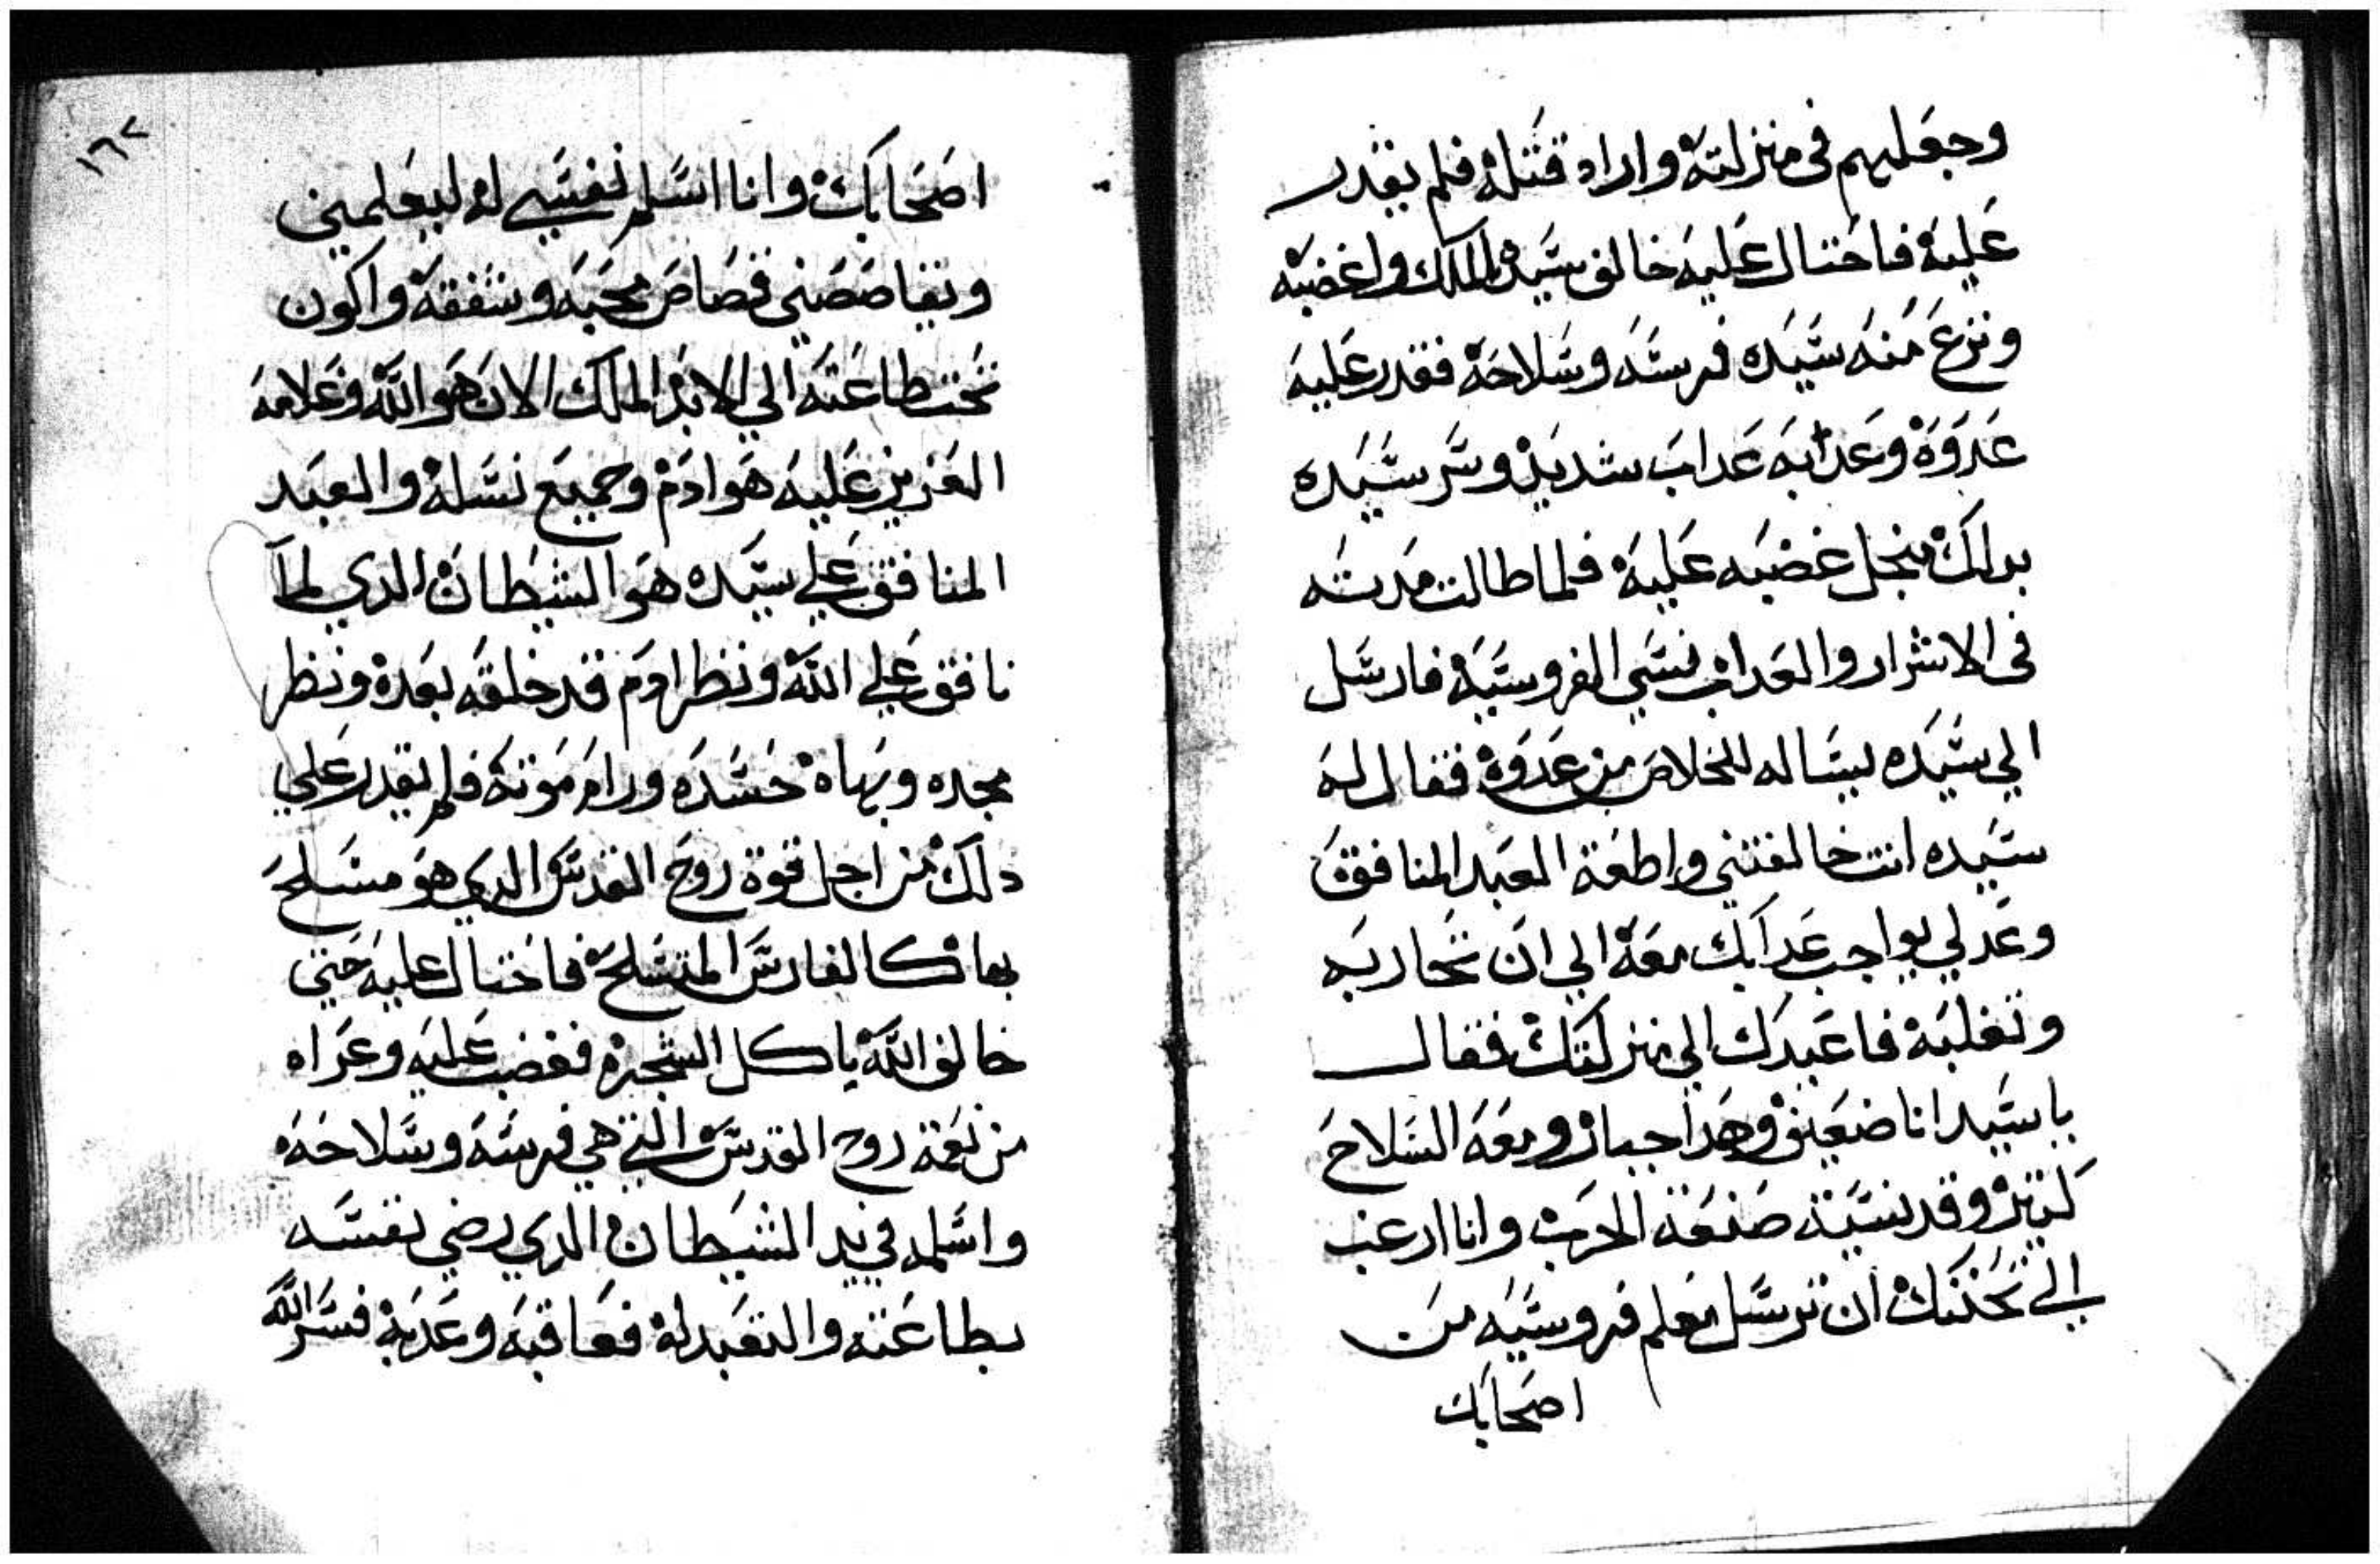 وجعلهم فى منزلتة واراد قتلة فلم يقدر
علية فاحتال عليه خالف سيدة الملك واغضبه
ونزع منه سيده فرسه وسلاحة فقدر عليه
عدوة وعدابه عداب شديد وسر سيده
بدلك منجل غضبه علية فلما طالت مدته
فى الاشرار والعداب نسي الفروسية فارسل
الي سيده يساله للخلاص من عدوة فقال له
سيده انت خالفتني واطعة العبد المنافق
وعدلي بواجب عدابك معة الي ان تحاربه
وتغلبة فاعيدك الي منزلتك فقال
ياسيد انا ضعيف وهدا جبار ومعه السلاح
كتير وقد نسية صنعة الحرب وانا ارغب
الي تحننك ان ترسل معلم فروسيه من
اصحابك
١٦٧
اصحابك وانا اسلم نفسي له ليعلمني
ويقاصصني قصاص محبه وشفقة واكون
تحت طاعته الي الابد الملك الان هو الله وغلامه
العزيز عليه هو ادم وجميع نسلة والعبد
المنافق علي سيده هو الشيطان الدي لما
نافق علي الله ونظر ادم قد خلقه بعدة ونظر
مجده وبهاة حسده ورام موتة فلم يقدر علي
دلك من اجل قوة روح القدس الدي هو مسلح
بها كالفارس المتسلح فاحتال عليه حتي
خالف الله باكل الشجرة فغضب عليه وعراه
من نعمة روح القدس التي هي فرسه وسلاحه
واسلمه في يد الشيطان الدي رضي لنفسه
بطاعته والتعبد لة فعاقبه وعدبة فسر الله